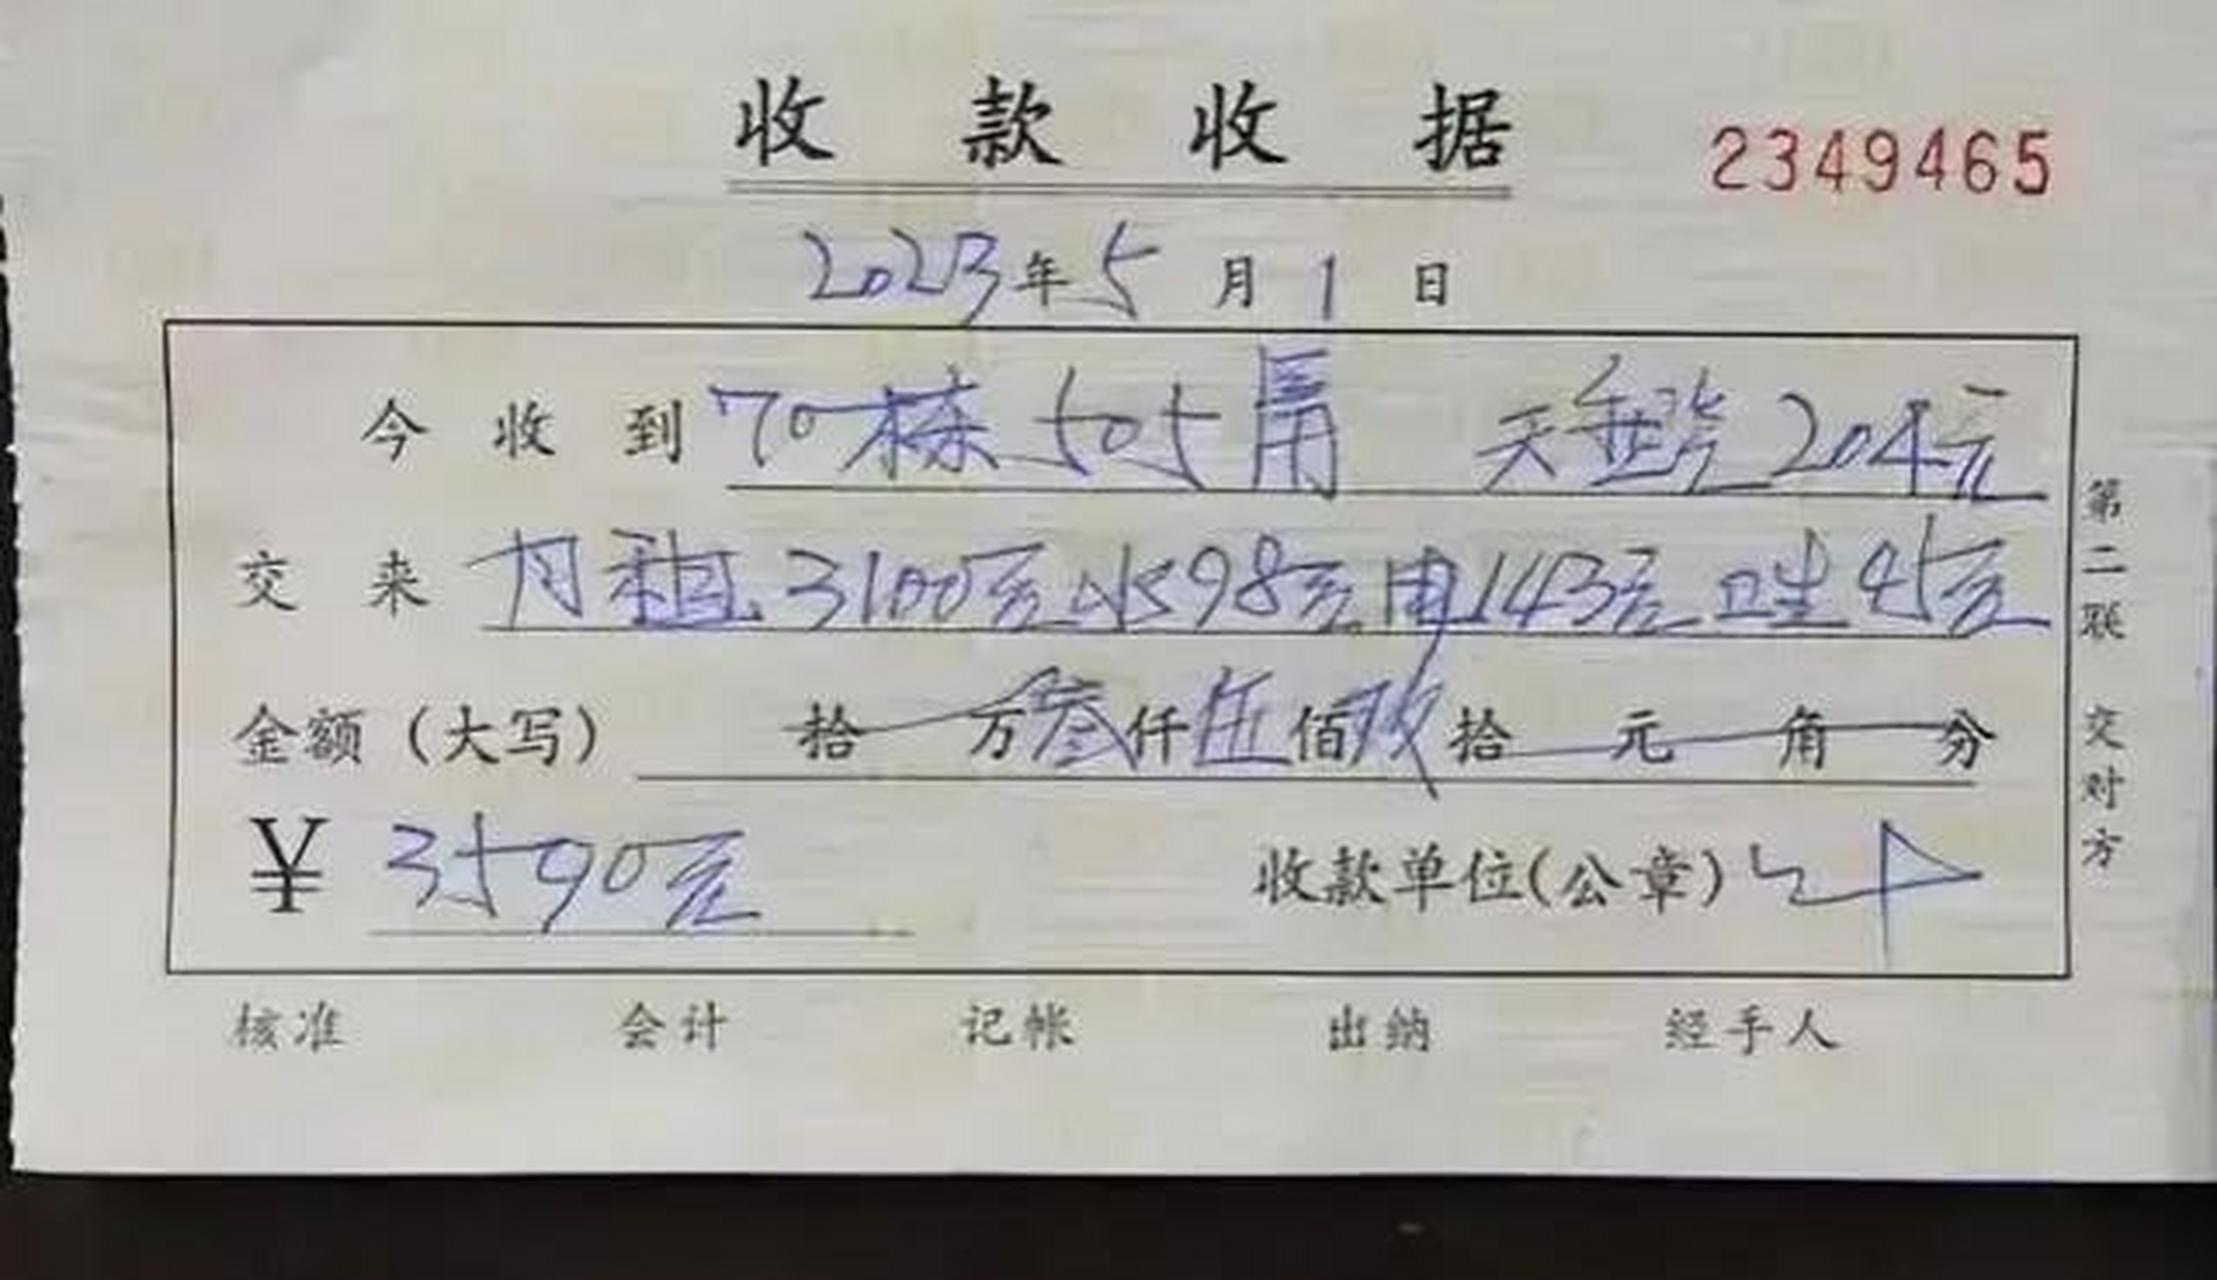 收款收据
2349465
2023年5月1日
今收到70栋505房 天然气204元
交来 月租3100元水98元电143元卫生45元
金额（大写） 拾 万叁仟伍佰玖拾 元 角 分
¥ 3590元 收款单位(公章)
核准 会计 记帐 出纳 经手人
第二联 交对方